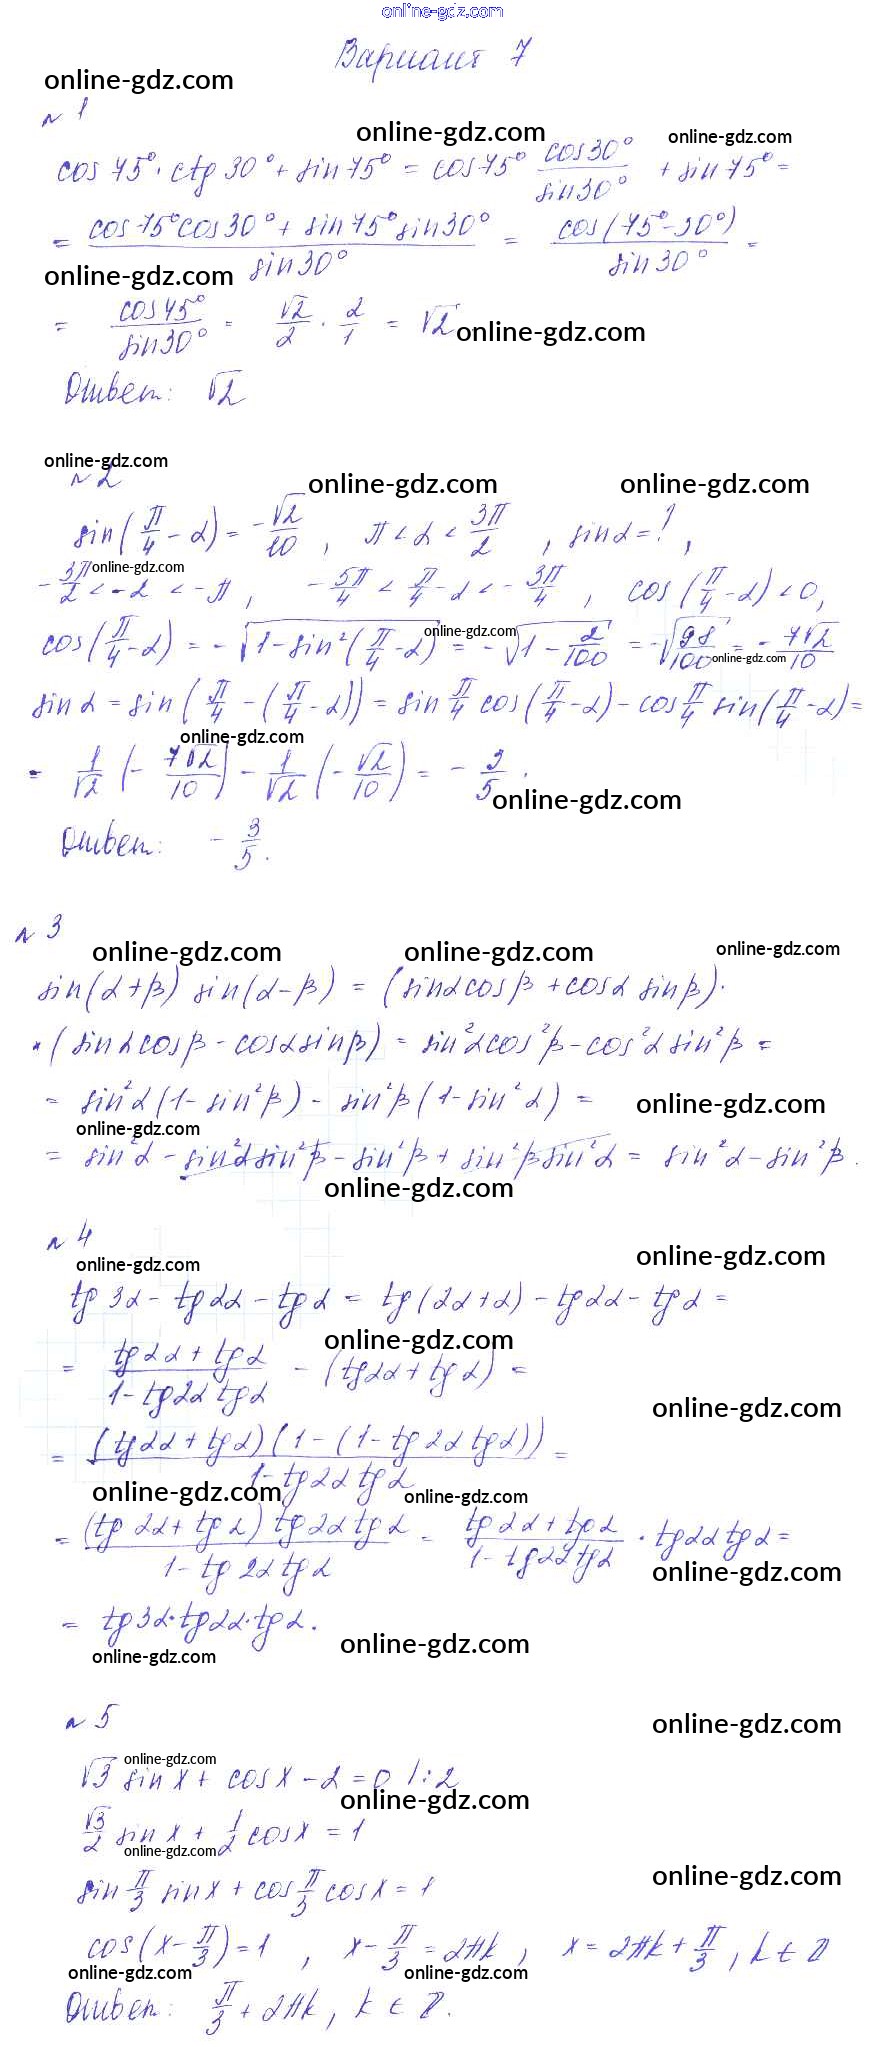 online-gdz.com
Вариант 7
online-gdz.com
№ 1
online-gdz.com
online-gdz.com
cos 75° · ctg 30° + sin 75° = cos 75° cos 30° / sin 30° + sin 75° =
= (cos 75° cos 30° + sin 75° sin 30°) / sin 30° = cos(75° - 30°) / sin 30° =
online-gdz.com
= cos 45° / sin 30° = √2/2 · 2/1 = √2
online-gdz.com
Ответ: √2
online-gdz.com
№ 2
online-gdz.com
online-gdz.com
sin(π/4 - α) = -√2/10, π < α < 3π/2, sin α = ?,
online-gdz.com
-3π/2 < -α < -π, -5π/4 < π/4 - α < -3π/4, cos(π/4 - α) < 0,
online-gdz.com
cos(π/4 - α) = -√(1 - sin²(π/4 - α)) = -√(1 - 2/100) = -√(98/100) = -7√2/10
online-gdz.com
sin α = sin(π/4 - (π/4 - α)) = sin π/4 cos(π/4 - α) - cos π/4 sin(π/4 - α) =
online-gdz.com
= 1/√2 (-7√2/10) - 1/√2 (-√2/10) = -3/5.
online-gdz.com
Ответ: -3/5.
№ 3
online-gdz.com
online-gdz.com
online-gdz.com
sin(α + β) sin(α - β) = (sin α cos β + cos α sin β) ·
· (sin α cos β - cos α sin β) = sin²α cos²β - cos²α sin²β =
= sin²α (1 - sin²β) - sin²β (1 - sin²α) =
online-gdz.com
online-gdz.com
= sin²α - sin²α sin²β - sin²β + sin²β sin²α = sin²α - sin²β.
online-gdz.com
№ 4
online-gdz.com
online-gdz.com
tg 3α - tg 2α - tg α = tg(2α + α) - tg 2α - tg α =
online-gdz.com
= (tg 2α + tg α) / (1 - tg 2α tg α) - (tg 2α + tg α) =
online-gdz.com
= (tg 2α + tg α)(1 - (1 - tg 2α tg α)) / (1 - tg 2α tg α) =
online-gdz.com
online-gdz.com
= (tg 2α + tg α) tg 2α tg α / (1 - tg 2α tg α) = (tg 2α + tg α) / (1 - tg 2α tg α) · tg 2α tg α =
online-gdz.com
= tg 3α · tg 2α · tg α.
online-gdz.com
online-gdz.com
№ 5
online-gdz.com
online-gdz.com
√3 sin x + cos x - 2 = 0 | : 2
online-gdz.com
√3/2 sin x + 1/2 cos x = 1
online-gdz.com
sin π/3 sin x + cos π/3 cos x = 1
online-gdz.com
cos(x - π/3) = 1, x - π/3 = 2πk, x = 2πk + π/3, k ∈ Z
online-gdz.com
online-gdz.com
Ответ: π/3 + 2πk, k ∈ Z.